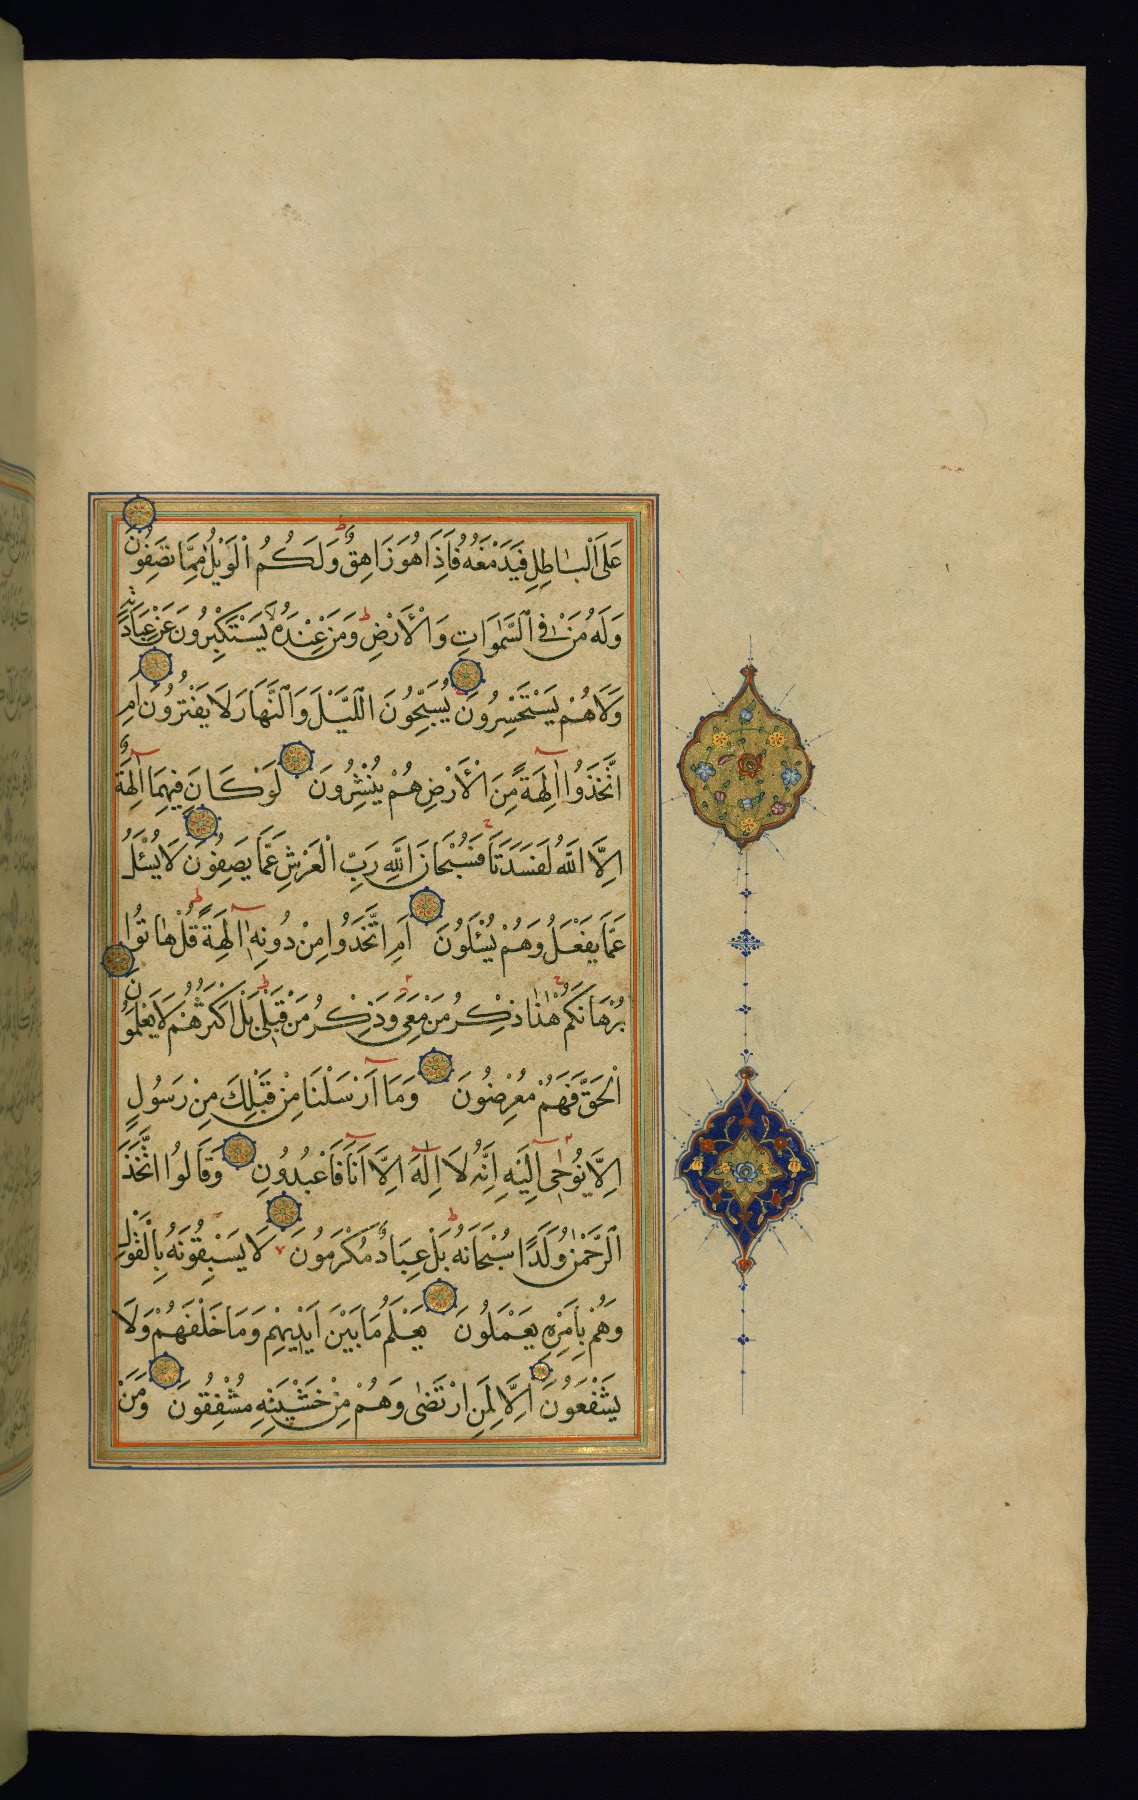 عَلَى الْبَاطِلِ فَيَدْمَغُهُ فَاِذَا هُوَ زَاهِقٌ وَلَكُمُ الْوَيْلُ مِمَّا تَصِفُونَ
وَلَهُ مَنْ فِي السَّمٰوَاتِ وَالْاَرْضِ وَمَنْ عِنْدَهُ لَا يَسْتَكْبِرُونَ عَنْ عِبَادَتِهِ
وَلَا هُمْ يَسْتَحْسِرُونَ يُسَبِّحُونَ اللَّيْلَ وَالنَّهَارَ لَا يَفْتُرُونَ اَمِ
اتَّخَذُوا اٰلِهَةً مِنَ الْاَرْضِ هُمْ يُنْشِرُونَ لَوْ كَانَ فِيهِمَا اٰلِهَةٌ
اِلَّا اللّٰهُ لَفَسَدَتَا فَسُبْحَانَ اللّٰهِ رَبِّ الْعَرْشِ عَمَّا يَصِفُونَ لَا يُسْئَلُ
عَمَّا يَفْعَلُ وَهُمْ يُسْئَلُونَ اَمِ اتَّخَذُوا مِنْ دُونِهِ اٰلِهَةً قُلْ هَاتُوا
بُرْهَانَكُمْ هٰذَا ذِكْرُ مَنْ مَعِيَ وَذِكْرُ مَنْ قَبْلِي بَلْ اَكْثَرُهُمْ لَا يَعْلَمُونَ
الْحَقَّ فَهُمْ مُعْرِضُونَ وَمَا اَرْسَلْنَا مِنْ قَبْلِكَ مِنْ رَسُولٍ
اِلَّا يُوحٰى اِلَيْهِ اَنَّهُ لَا اِلٰهَ اِلَّا اَنَا فَاعْبُدُونِ وَقَالُوا اتَّخَذَ
الرَّحْمٰنُ وَلَدًا سُبْحَانَهُ بَلْ عِبَادٌ مُكْرَمُونَ لَا يَسْبِقُونَهُ بِالْقَوْلِ
وَهُمْ بِاَمْرِهِ يَعْمَلُونَ يَعْلَمُ مَا بَيْنَ اَيْدِيهِمْ وَمَا خَلْفَهُمْ وَلَا
يَشْفَعُونَ اِلَّا لِمَنِ ارْتَضٰى وَهُمْ مِنْ خَشْيَتِهِ مُشْفِقُونَ وَمَنْ